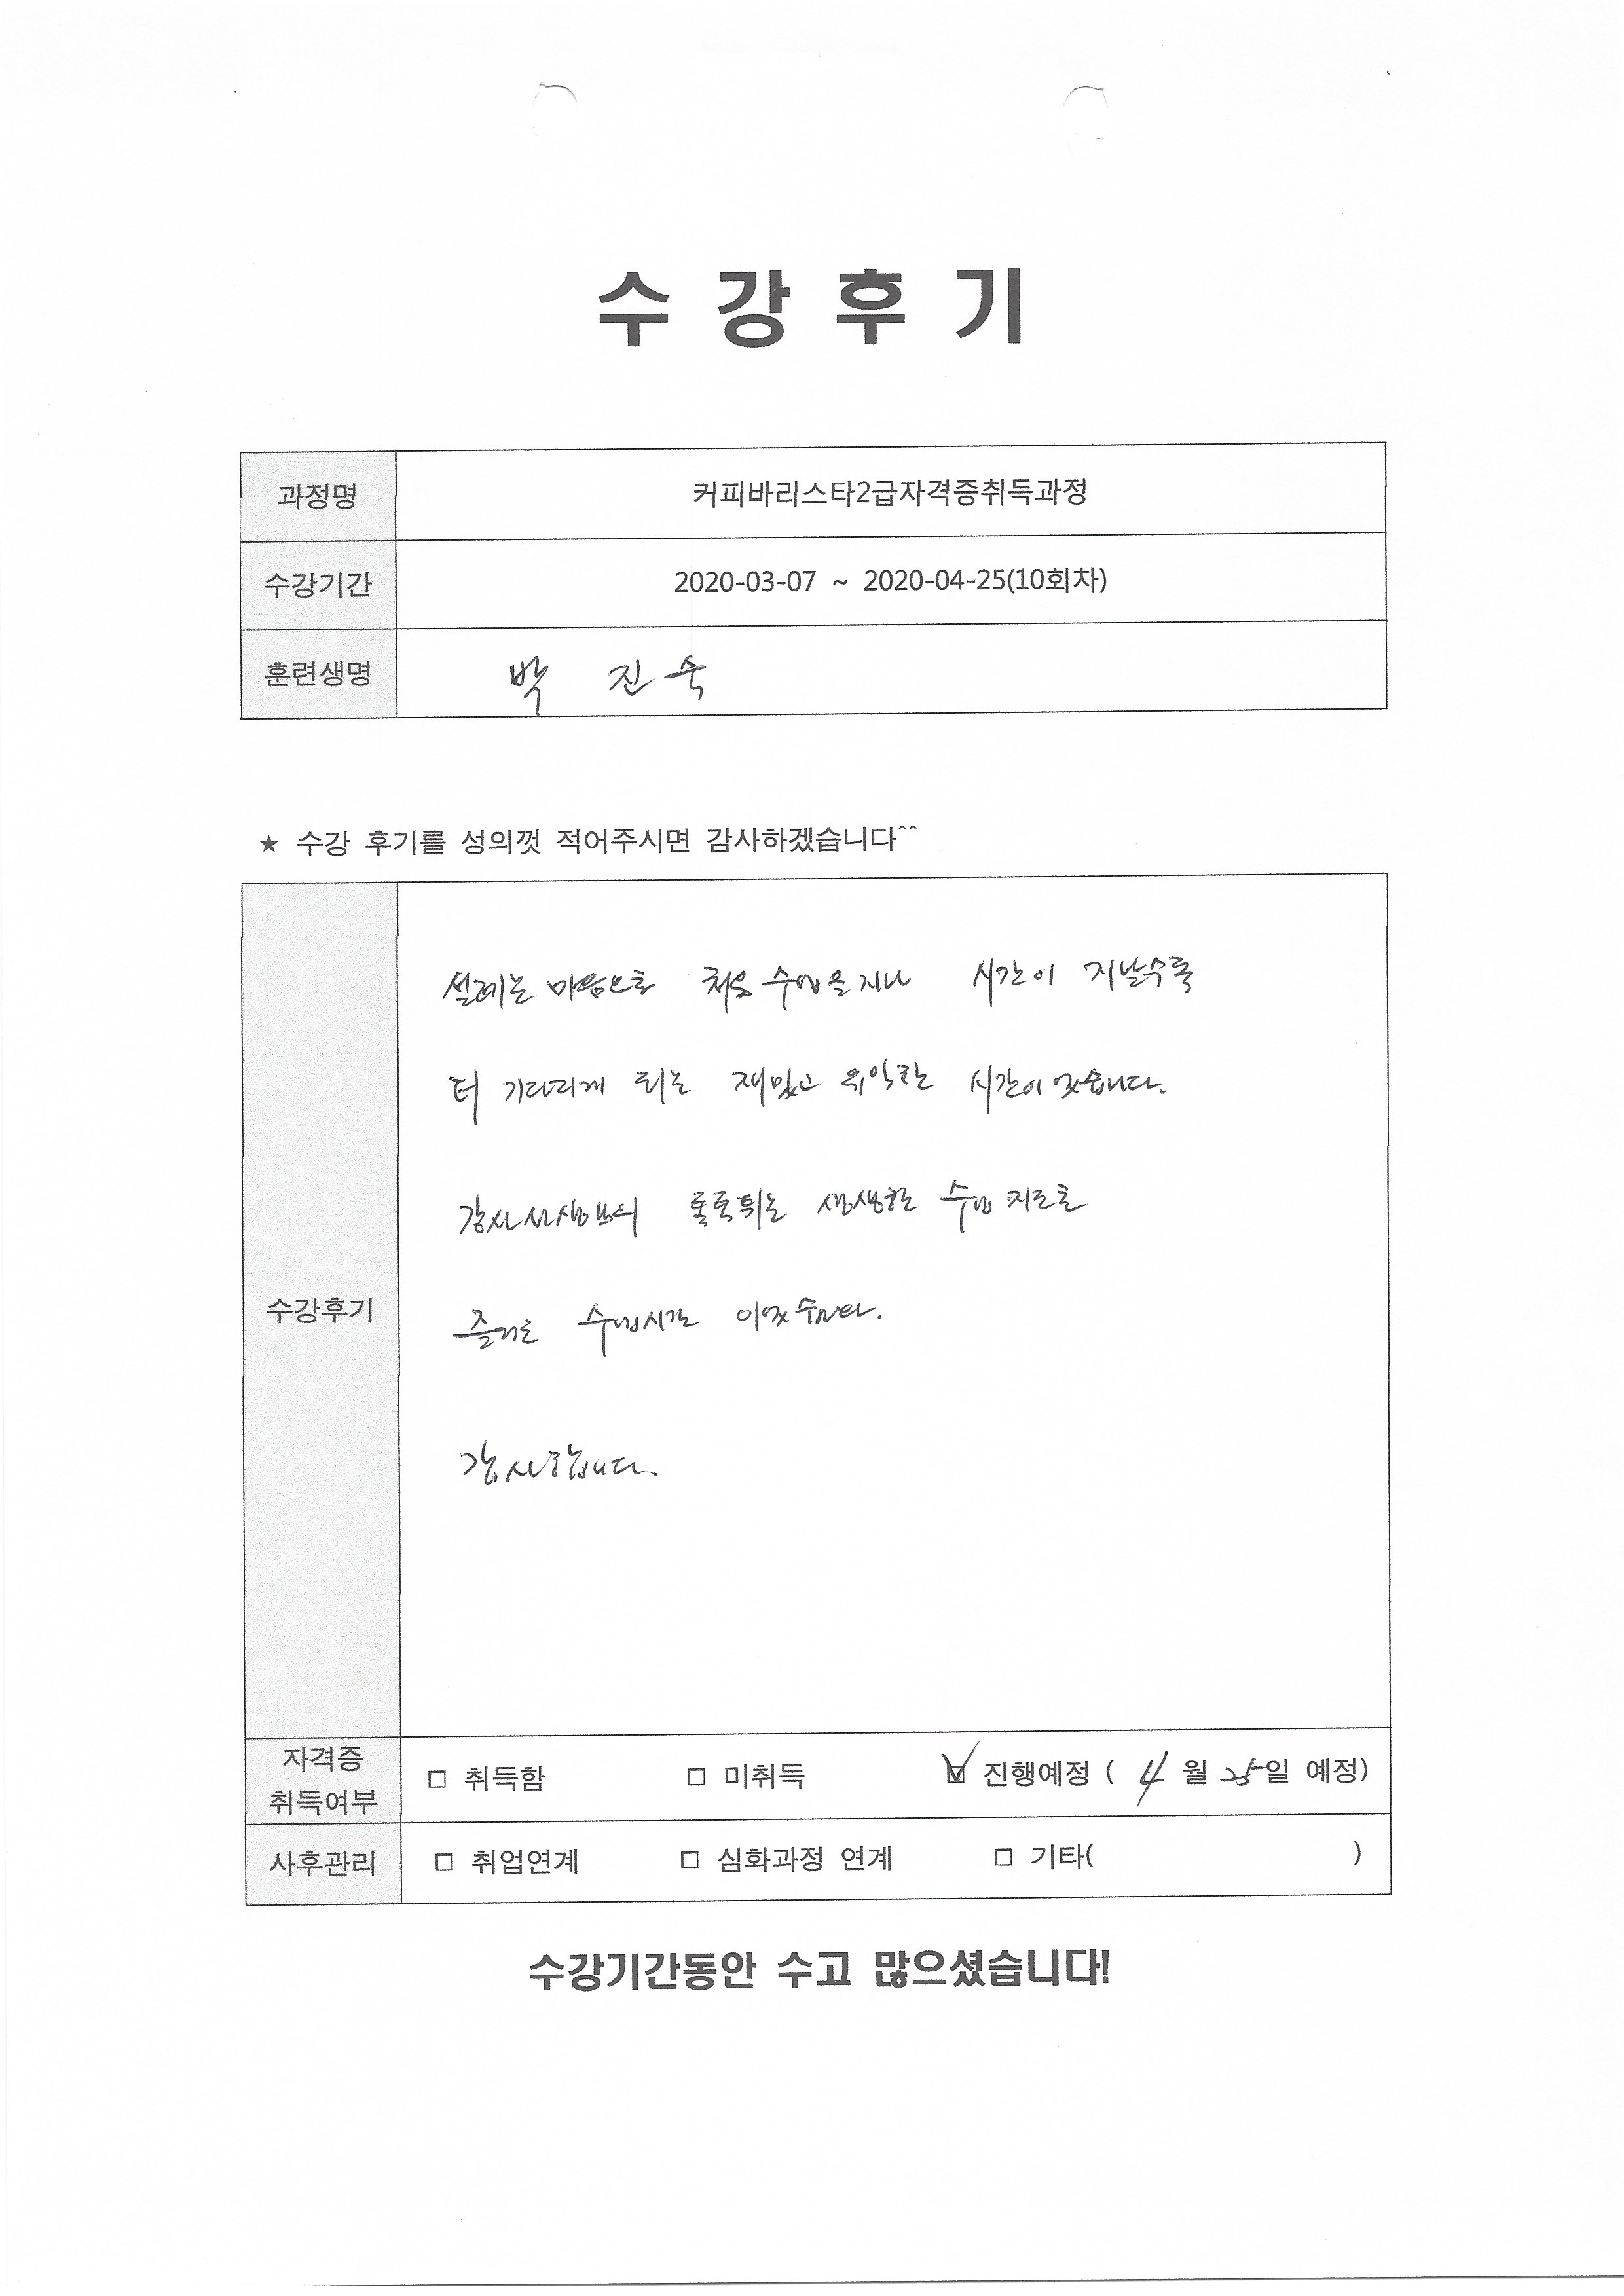 수 강 후 기
과정명 커피바리스타2급자격증취득과정
수강기간 2020-03-07 ~ 2020-04-25(10회차)
훈련생명 박 진숙
★ 수강 후기를 성의껏 적어주시면 감사하겠습니다^^
설레는 마음으로 처음 수업을 지나 시간이 지날수록
더 기다리게 되는 재밌고 유익한 시간이었습니다.
강사선생님의 톡톡튀는 생생한 수업 지도로
수강후기
즐거운 수업시간 이었습니다.
감사합니다.
자격증 취득여부 □ 취득함 □ 미취득 ☑ 진행예정 ( 4 월 25일 예정)
사후관리 □ 취업연계 □ 심화과정 연계 □ 기타( )
수강기간동안 수고 많으셨습니다!